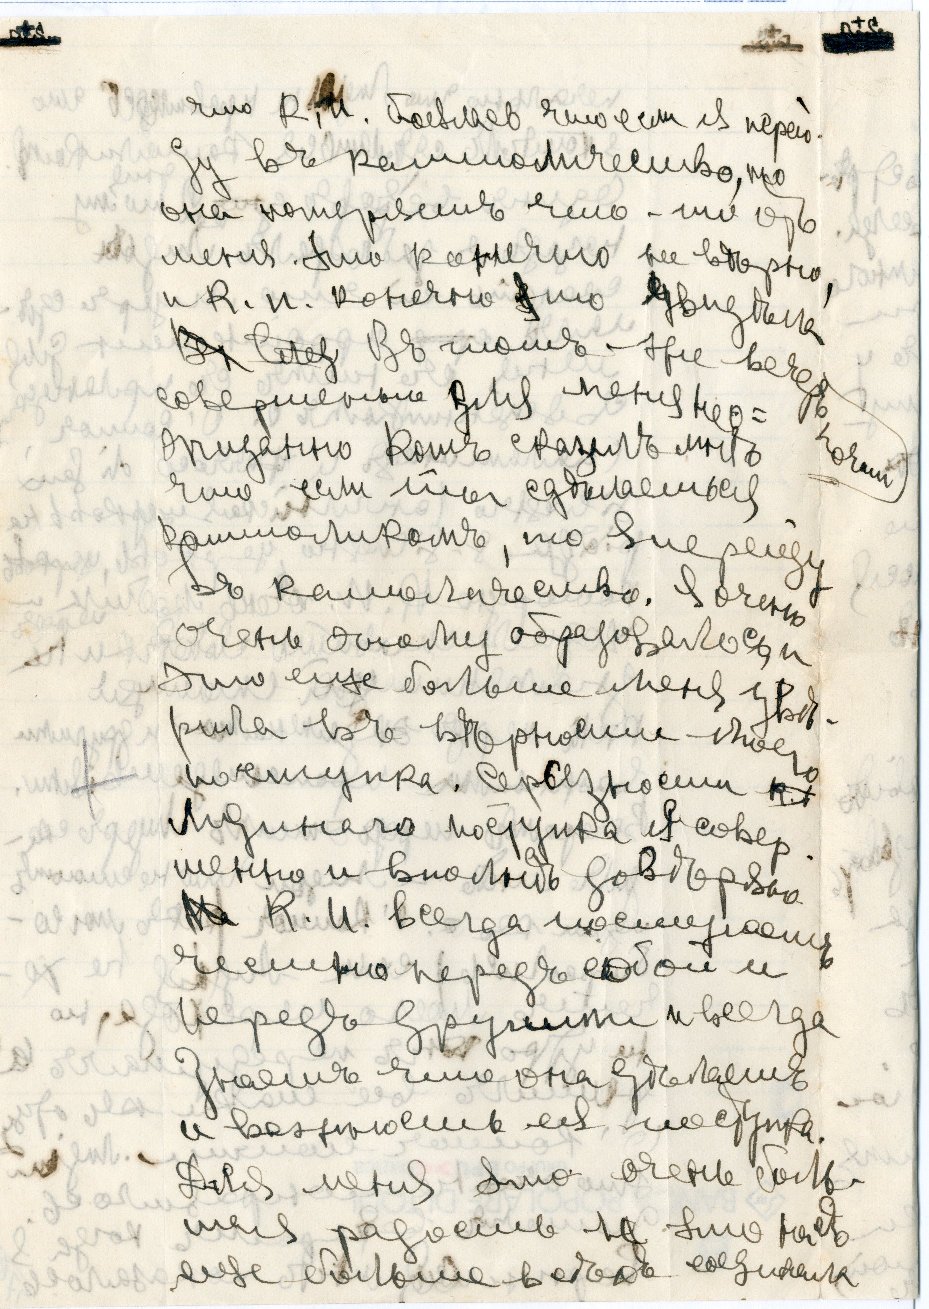 что К. И. боялась что если я перей-
ду въ католичество, то
она потеряетъ что-то отъ
меня. Это конечно не вѣрно,
и К. И. конечно это увидѣла
Въ тотъ-же вечеръ
совершенно для меня нео=
жиданно Котъ сказалъ мнѣ почти
что если ты сдѣлаешься
католикомъ, то я перейду
въ католичество. Я очень
очень этому обрадовалось, и
это еще больше меня увѣ-
рила въ вѣрности моего
поступка. Серьезности
Лидинаго поступка я совер-
шенно и вполнѣ довѣряю
К. И. всегда поступаетъ
честно передъ собой и
передъ другими и всегда
знаетъ что она дѣлаетъ
и важность ея поступка.
Для меня это очень боль-
шая радость и это насъ
еще больше